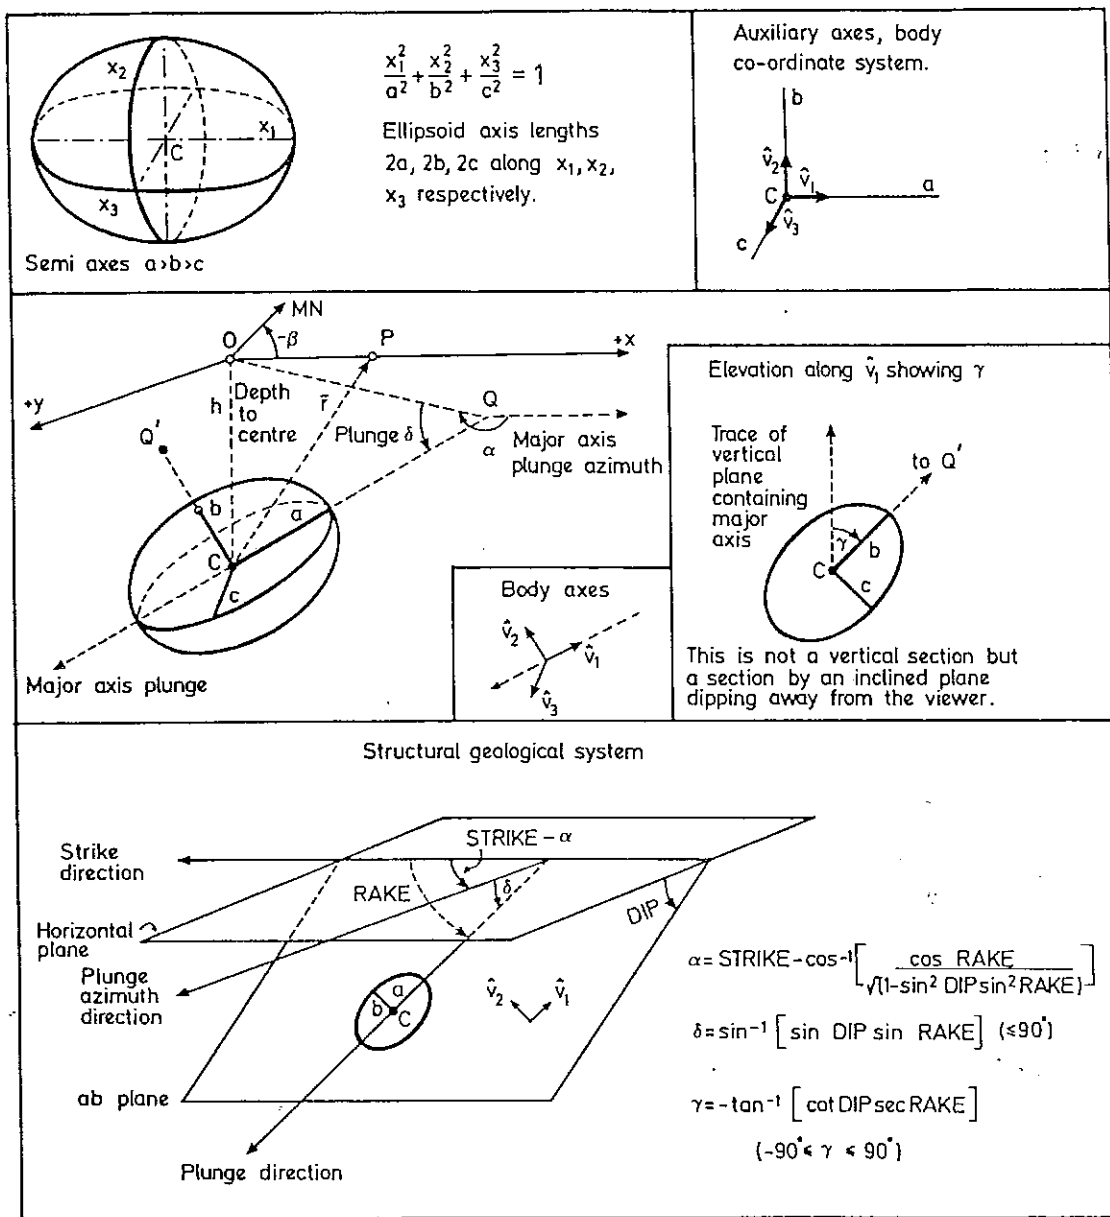 x₂
x₁
C
x₃
Semi axes a>b>c
x₁²/a² + x₂²/b² + x₃²/c² = 1
Ellipsoid axis lengths
2a, 2b, 2c along x₁, x₂,
x₃ respectively.
Auxiliary axes, body
co-ordinate system.
b
v̂₂
v̂₁
a
C
v̂₃
c
MN
O
-β
P
+x
+y
h
Depth
to
centre
r̄
Q
Q'
Plunge δ
α
Major axis
plunge azimuth
b
a
C
c
Major axis plunge
Body axes
v̂₂
v̂₁
v̂₃
Elevation along v̂₁ showing γ
Trace of
vertical
plane
containing
major
axis
to Q'
γ
b
C
c
This is not a vertical section but
a section by an inclined plane
dipping away from the viewer.
Structural geological system
STRIKE - α
Strike
direction
RAKE
δ
DIP
Horizontal
plane
Plunge
azimuth
direction
a
b
C
v̂₂
v̂₁
ab plane
Plunge direction
α = STRIKE - cos⁻¹[cos RAKE / √(1-sin² DIP sin² RAKE)]
δ = sin⁻¹ [sin DIP sin RAKE] (≤90°)
γ = -tan⁻¹ [cot DIP sec RAKE]
(-90° ≤ γ ≤ 90°)